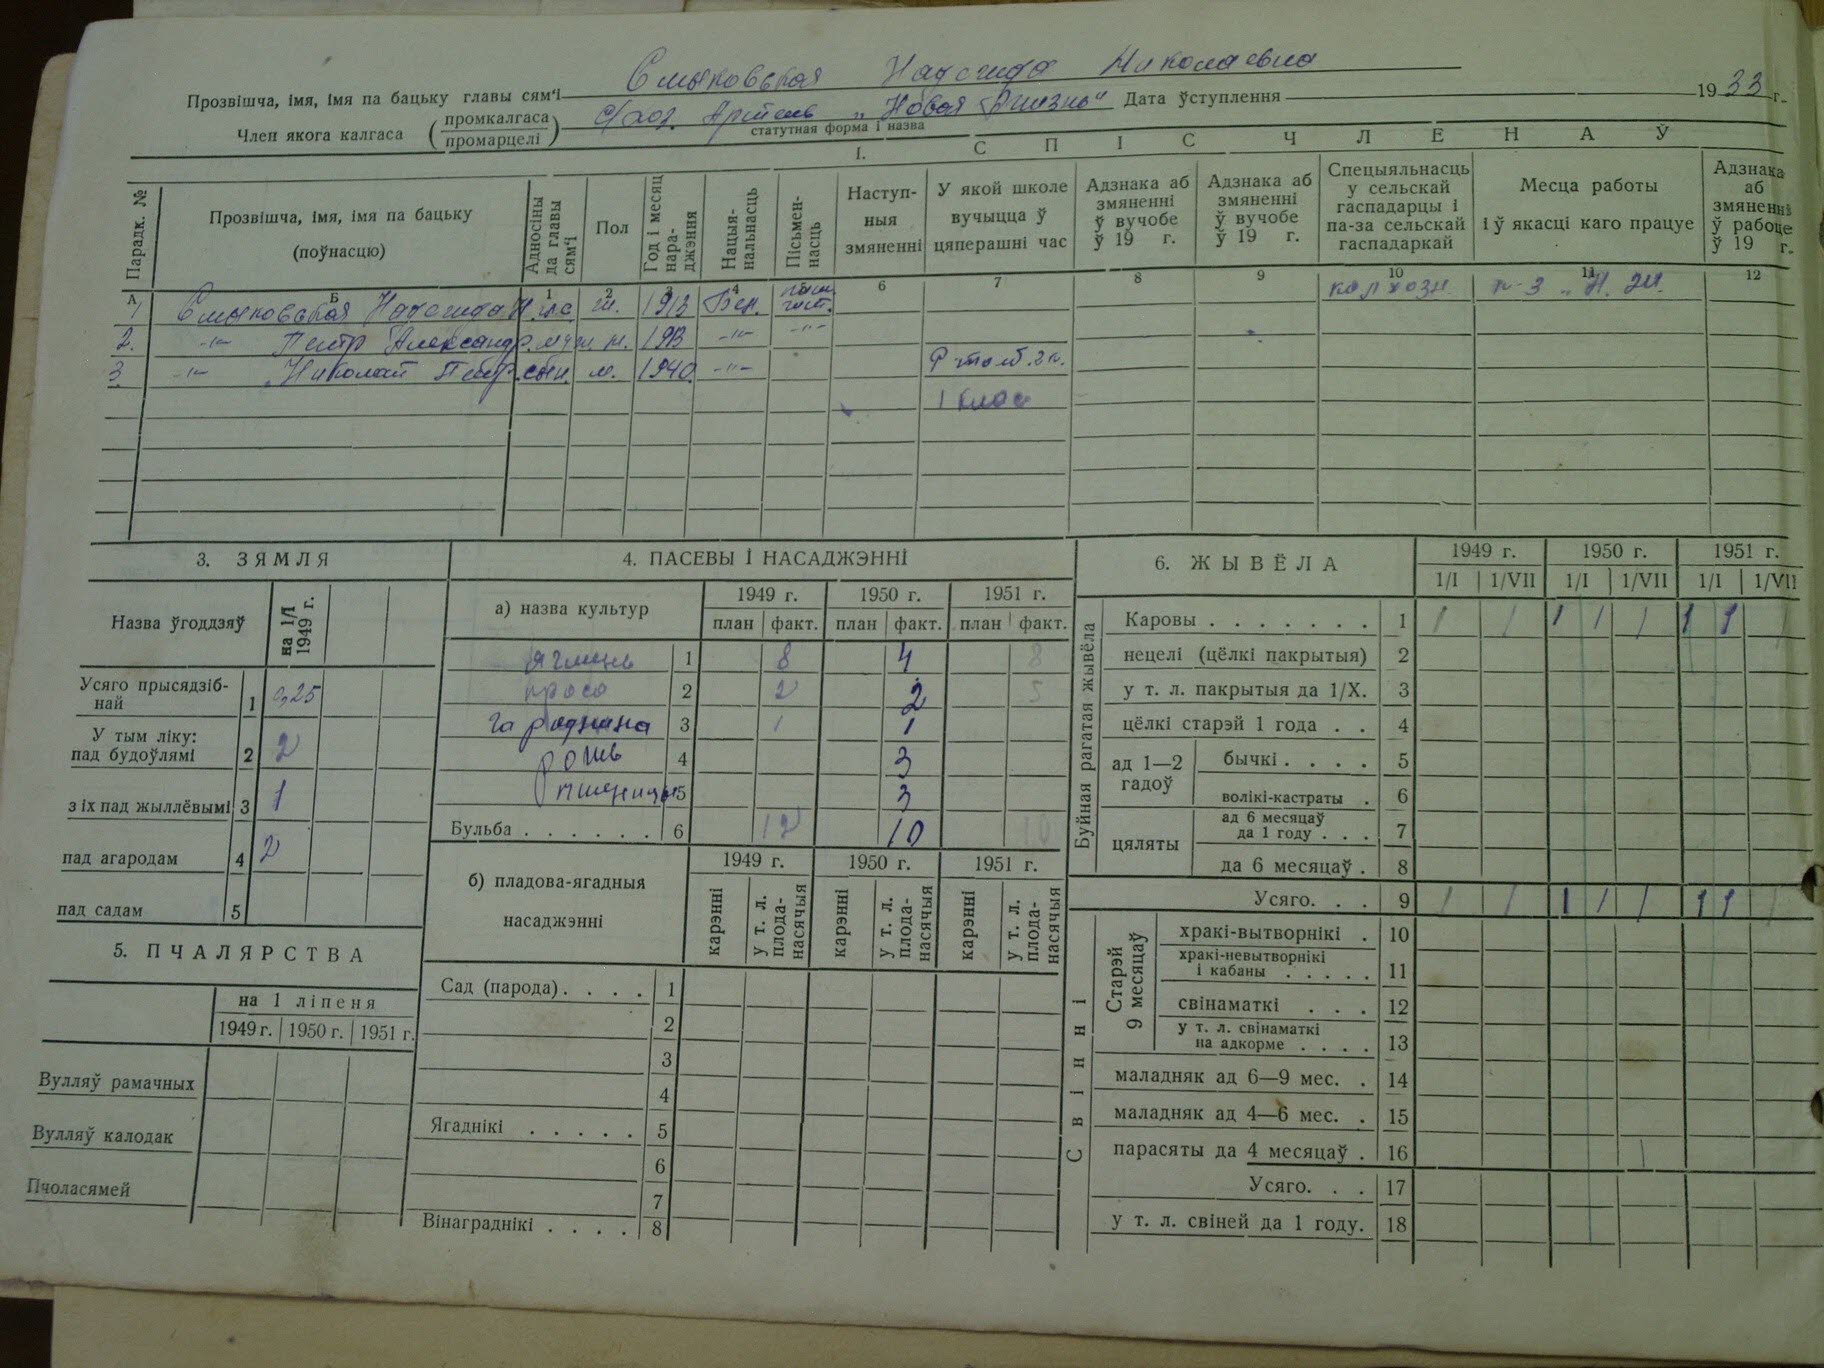 Прозвішча, імя, імя па бацьку главы сям'і Смыковская Надежда Николаевна
Член якога калгаса (промкалгаса промарцелі) с/хоз. Артель „Новая Жизнь" Дата ўступлення 1933 г.
статутная форма і назва
I. СПІС ЧЛЕНАЎ
Парадк. № | Прозвішча, імя, імя па бацьку (поўнасцю) | Адносіны да главы сям'і | Пол | Год і месяц нараджэння | Нацыянальнасць | Пісьменнасць | Наступныя змяненні | У якой школе вучыцца ў цяперашні час | Адзнака аб змяненні ў вучобе ў 19 г. | Адзнака аб змяненні ў вучобе ў 19 г. | Спецыяльнасць у сельскай гаспадарцы і па-за сельскай гаспадаркай | Месца работы і ў якасці каго працуе | Адзнака аб змяненні ў рабоце ў 19 г.
А Б 1 2 3 4 5 6 7 8 9 10 11 12
1 Смыковская Надежда Н. ж. 1913 Бел. колхозн к-з „Н. Ж.
2. -"- Петр Александр. муж м. 1913 -"- -"-
3 -"- Николай Петр. сын. м. 1940 -"-
1 клас
3. ЗЯМЛЯ
Назва ўгоддзяў | на 1/I 1949 г.
Усяго прысядзібнай 1 0,25
У тым ліку:
пад будоўлямі 2 2
з іх пад жыллёвымі 3 1
пад агародам 4 2
пад садам 5
5. ПЧАЛЯРСТВА
на 1 ліпеня
1949 г. 1950 г. 1951 г.
Вулляў рамачных
Вулляў калодак
Пчоласямей
4. ПАСЕВЫ І НАСАДЖЭННІ
а) назва культур | 1949 г. | 1950 г. | 1951 г.
план факт. план факт. план факт.
ячмень 1 8 4 8
просо 2 2 2 5
гародніна 3 1 1
рожь 4 3
пшеницы 5 3
Бульба . . . . . . 6 12 10 10
б) пладова-ягадныя насаджэнні | 1949 г. | 1950 г. | 1951 г.
карэнні | у т. л. пладанасячыя | карэнні | у т. л. пладанасячыя | карэнні | у т. л. пладанасячыя
Сад (парода) . . . . 1
2
3
4
Ягаднікі . . . . . 5
6
7
Вінаграднікі . . . . 8
6. ЖЫВЁЛА | 1949 г. | 1950 г. | 1951 г.
1/I 1/VII 1/I 1/VII 1/I 1/VII
Буйная рагатая жывёла
Каровы . . . . . . . 1 1 1 1 1 1 1 1 1
нецелі (цёлкі пакрытыя) 2
у т. л. пакрытыя да 1/X. 3
цёлкі старэй 1 года . . 4
ад 1—2 гадоў
бычкі . . . . 5
волікі-кастраты . 6
цяляты
ад 6 месяцаў да 1 году . . . 7
да 6 месяцаў . 8
Усяго. . . 9 1 1 1 1 1 1 1 1
Свінні
Старэй 9 месяцаў
хракі-вытворнікі . 10
хракі-невытворнікі і кабаны . . . . . 11
свінаматкі . . . 12
у т. л. свінаматкі на адкорме . . . . 13
маладняк ад 6—9 мес. . 14
маладняк ад 4—6 мес. . 15
парасяты да 4 месяцаў . 16
Усяго. . . 17
у т. л. свіней да 1 году. 18